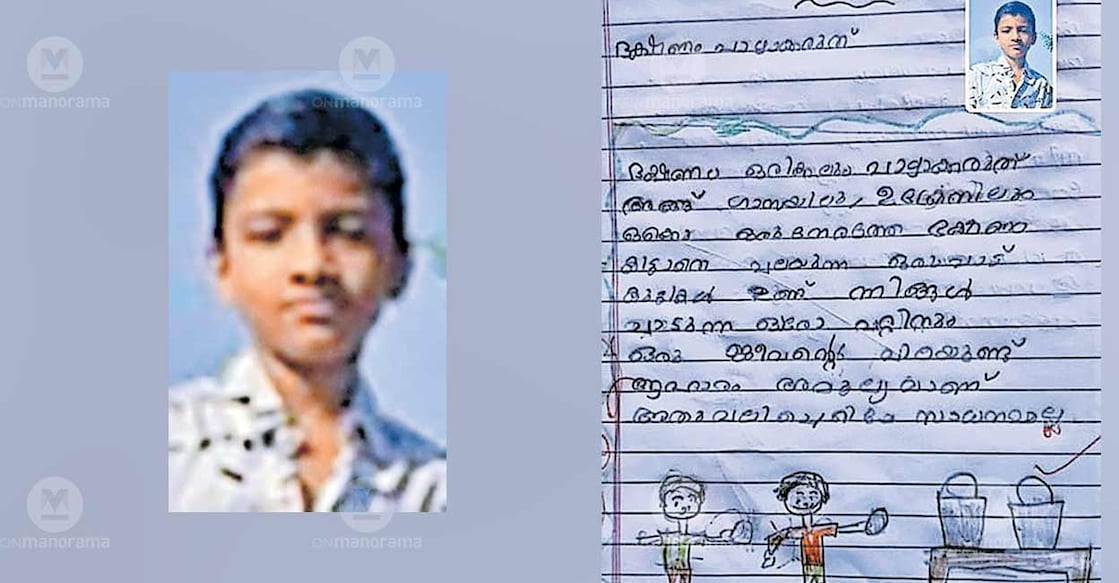 ഭക്ഷണം പാഴാക്കരുത്
ഭക്ഷണം ഒരിക്കലും പാഴാക്കരുത്
അങ്ങ് ഗാസയിലും, ഉക്രേണിലും
ഒക്കെ ഒരുനേരത്തെ ഭക്ഷണം
കിട്ടാനെ വലയുന്ന ഒരുപാട്
കുട്ടികൾ ഉണ്ട് ന്നിങ്ങൾ
ഒരോ വറ്റിനും
ഒരു ജീവന്റെ വിലയുണ്ട്
ആഹാരം അമൂല്യമാണ്
അതു വലിച്ചെറിച്ചേ സാധനമല്ല
M
ONmanorama
M
ONmanorama
M
ONmanorama
M
ONmanorama